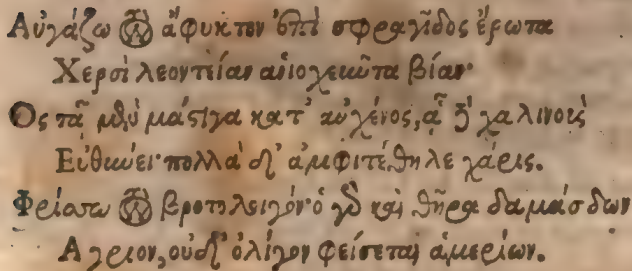 Αὐγάζω τὸν ἄφυκτον ἐπὶ σφραγῖδος ἔρωτα
Χερσὶ λεοντείαν ἁνιοχεῦντα βίαν·
Ος τᾷ μὲν μάστιγα κατ' αὐχένος, ᾇ δὲ χαλινοὺς
Εὐθύνει· πολλὰ δ' ἀμφιτέθηλε χάρις.
Φρίσσω τὸν βροτολοιγόν· ὁ γὰρ καὶ θῆρα δαμάσδων
Αγριον, οὐδ' ὀλίγον φείσεται ἁμερίων.